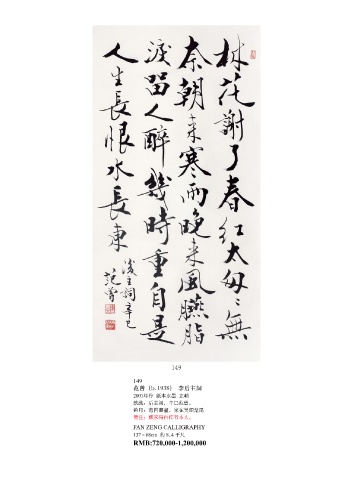 林花謝了春红太匆〻無
奈朝来寒雨晚来風臙脂
淚留人醉幾時重自是
人生長恨水長東
後主詞辛巳
范曾
149
149
范曾 (b.1938) 李后主词
2001年作 纸本水墨 立轴
款识:后主词,辛巳范曾。
FAN ZENG CALLIGRAPHY
137×68cm 约8.4平尺
RMB:720,000-1,200,000